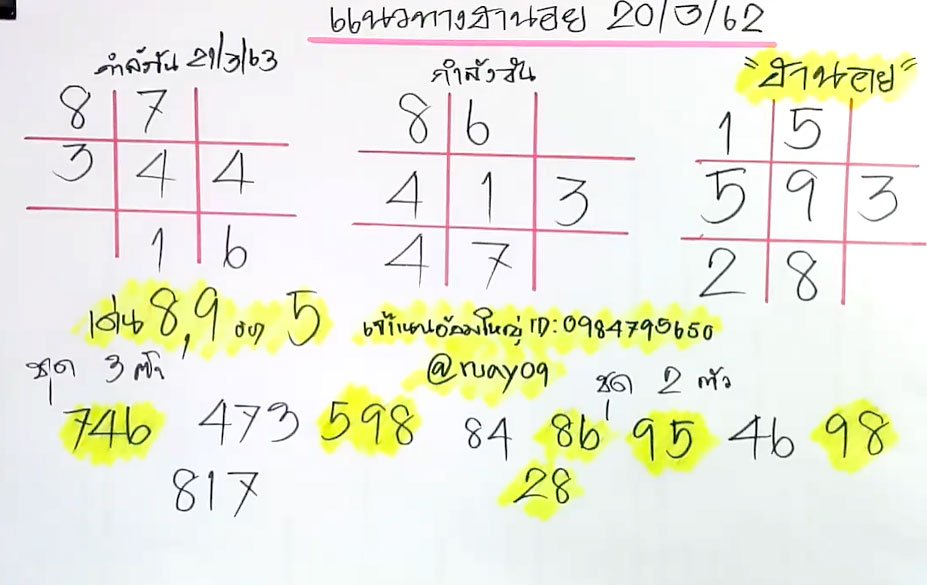 แนวทางฮานอย 20/3/62
กำลังวัน 21/3/63
กำลังวัน
"ฮานอย"
8 7
3 4 4
1 6
8 6
4 1 3
4 7
1 5
5 9 3
2 8
เด่น 8,9 รอง 5
ID: 0984795650
@ruay09
ชุด 3 ตัว
ชุด 2 ตัว
746 473 598
817
84 86 95 46 98
28